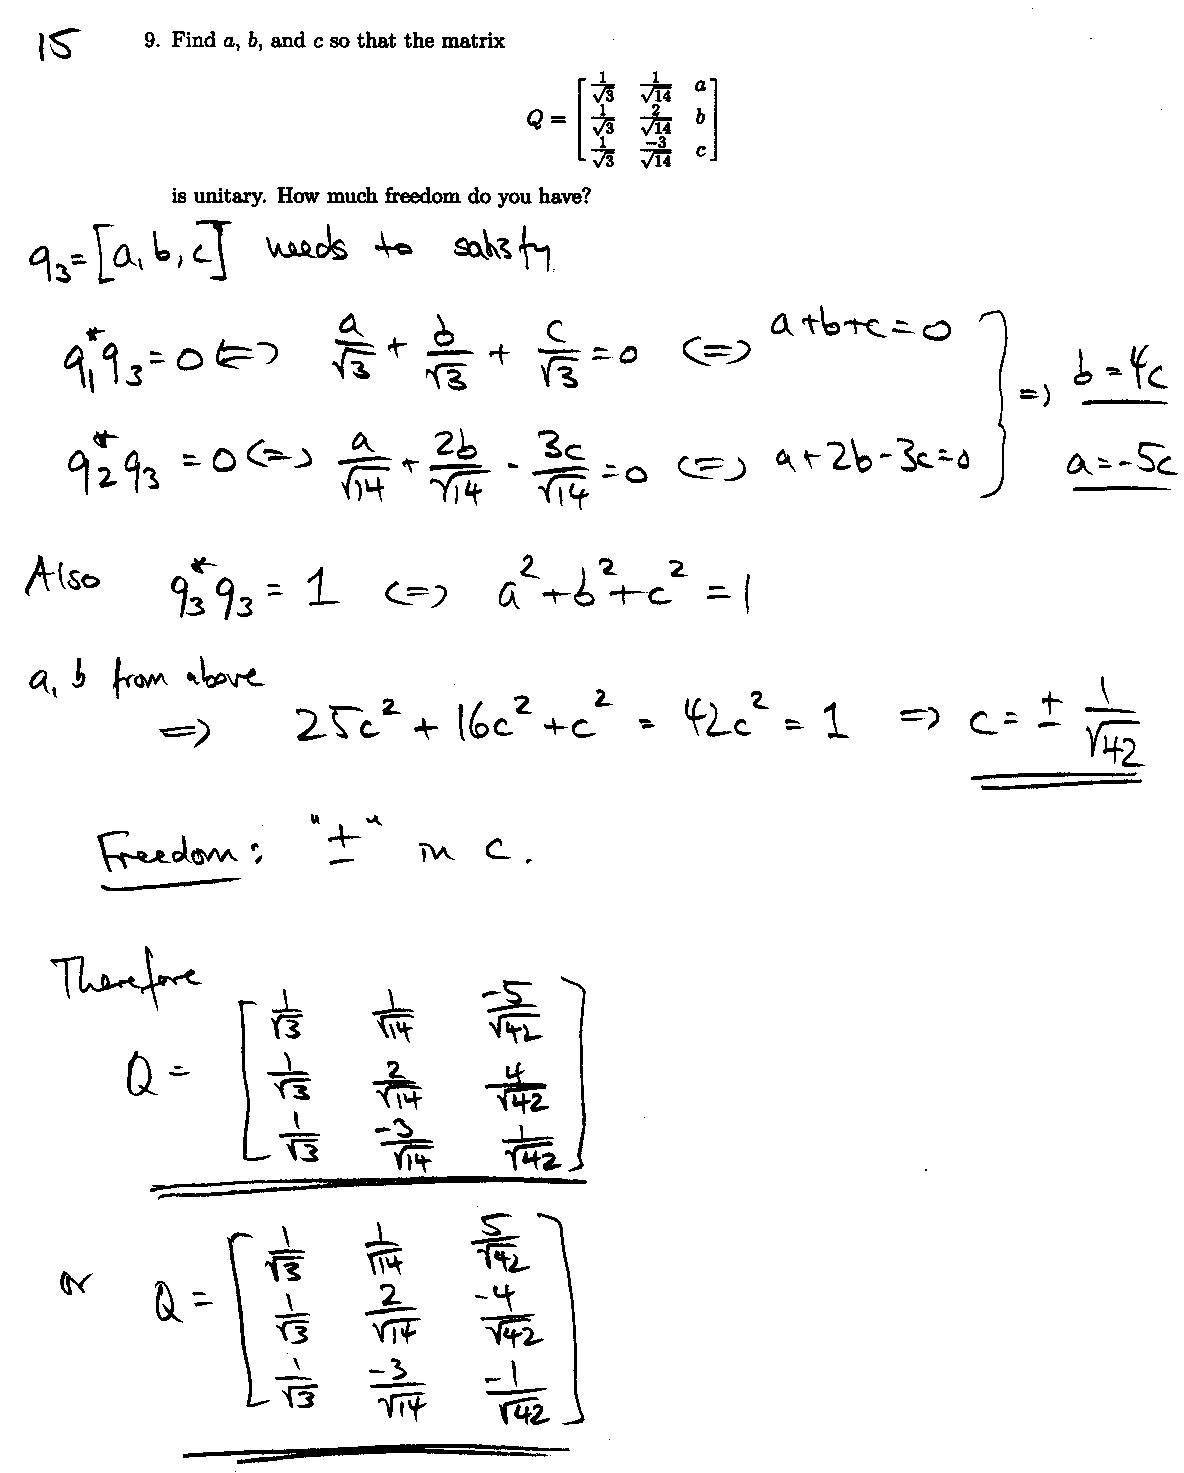 15 9. Find a, b, and c so that the matrix
Q = [ 1/√3 1/√14 a
1/√3 2/√14 b
1/√3 -3/√14 c ]
is unitary. How much freedom do you have?
q₃=[a,b,c] needs to satisfy
q₁*q₃=0 <=> a/√3 + b/√3 + c/√3 =0 <=> a+b+c=0
q₂*q₃=0 <=> a/√14 + 2b/√14 - 3c/√14 =0 <=> a+2b-3c=0 } => b=4c
a=-5c
Also q₃*q₃=1 <=> a²+b²+c²=1
a, b from above
=> 25c²+16c²+c² = 42c² = 1 => c=± 1/√42
Freedom: "±" in c.
Therefore
Q = [ 1/√3 1/√14 -5/√42
1/√3 2/√14 4/√42
1/√3 -3/√14 1/√42 ]
or Q = [ 1/√3 1/√14 5/√42
1/√3 2/√14 -4/√42
1/√3 -3/√14 -1/√42 ]